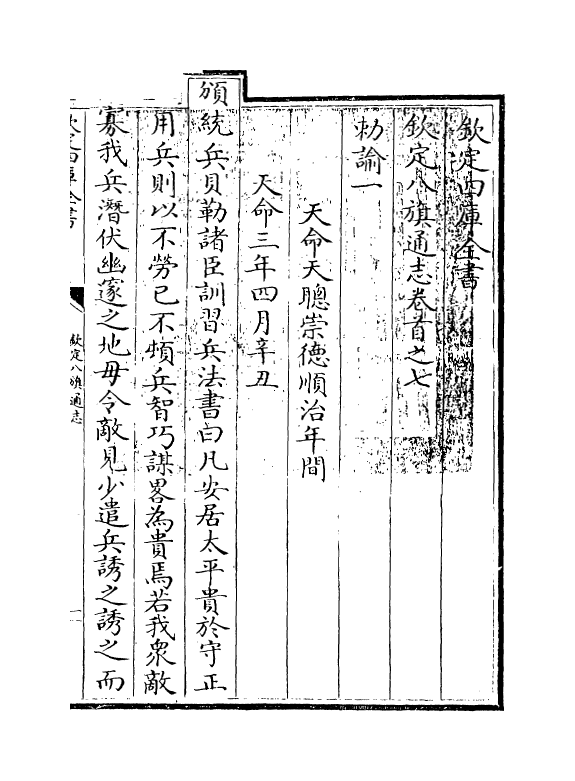 欽定四庫全書
欽定八旗通志卷首之七
勅諭一
天命天聰崇徳順治年間
天命三年四月辛丑
頒統兵貝勒諸臣訓習兵法書曰凡安居太平貴於守正
用兵則以不勞已不頓兵智巧謀畧為貴焉若我衆敵
寡我兵潛伏幽邃之地毋令敵見少遣兵誘之誘之而
欽定四庫全書
欽定八旗通志
一